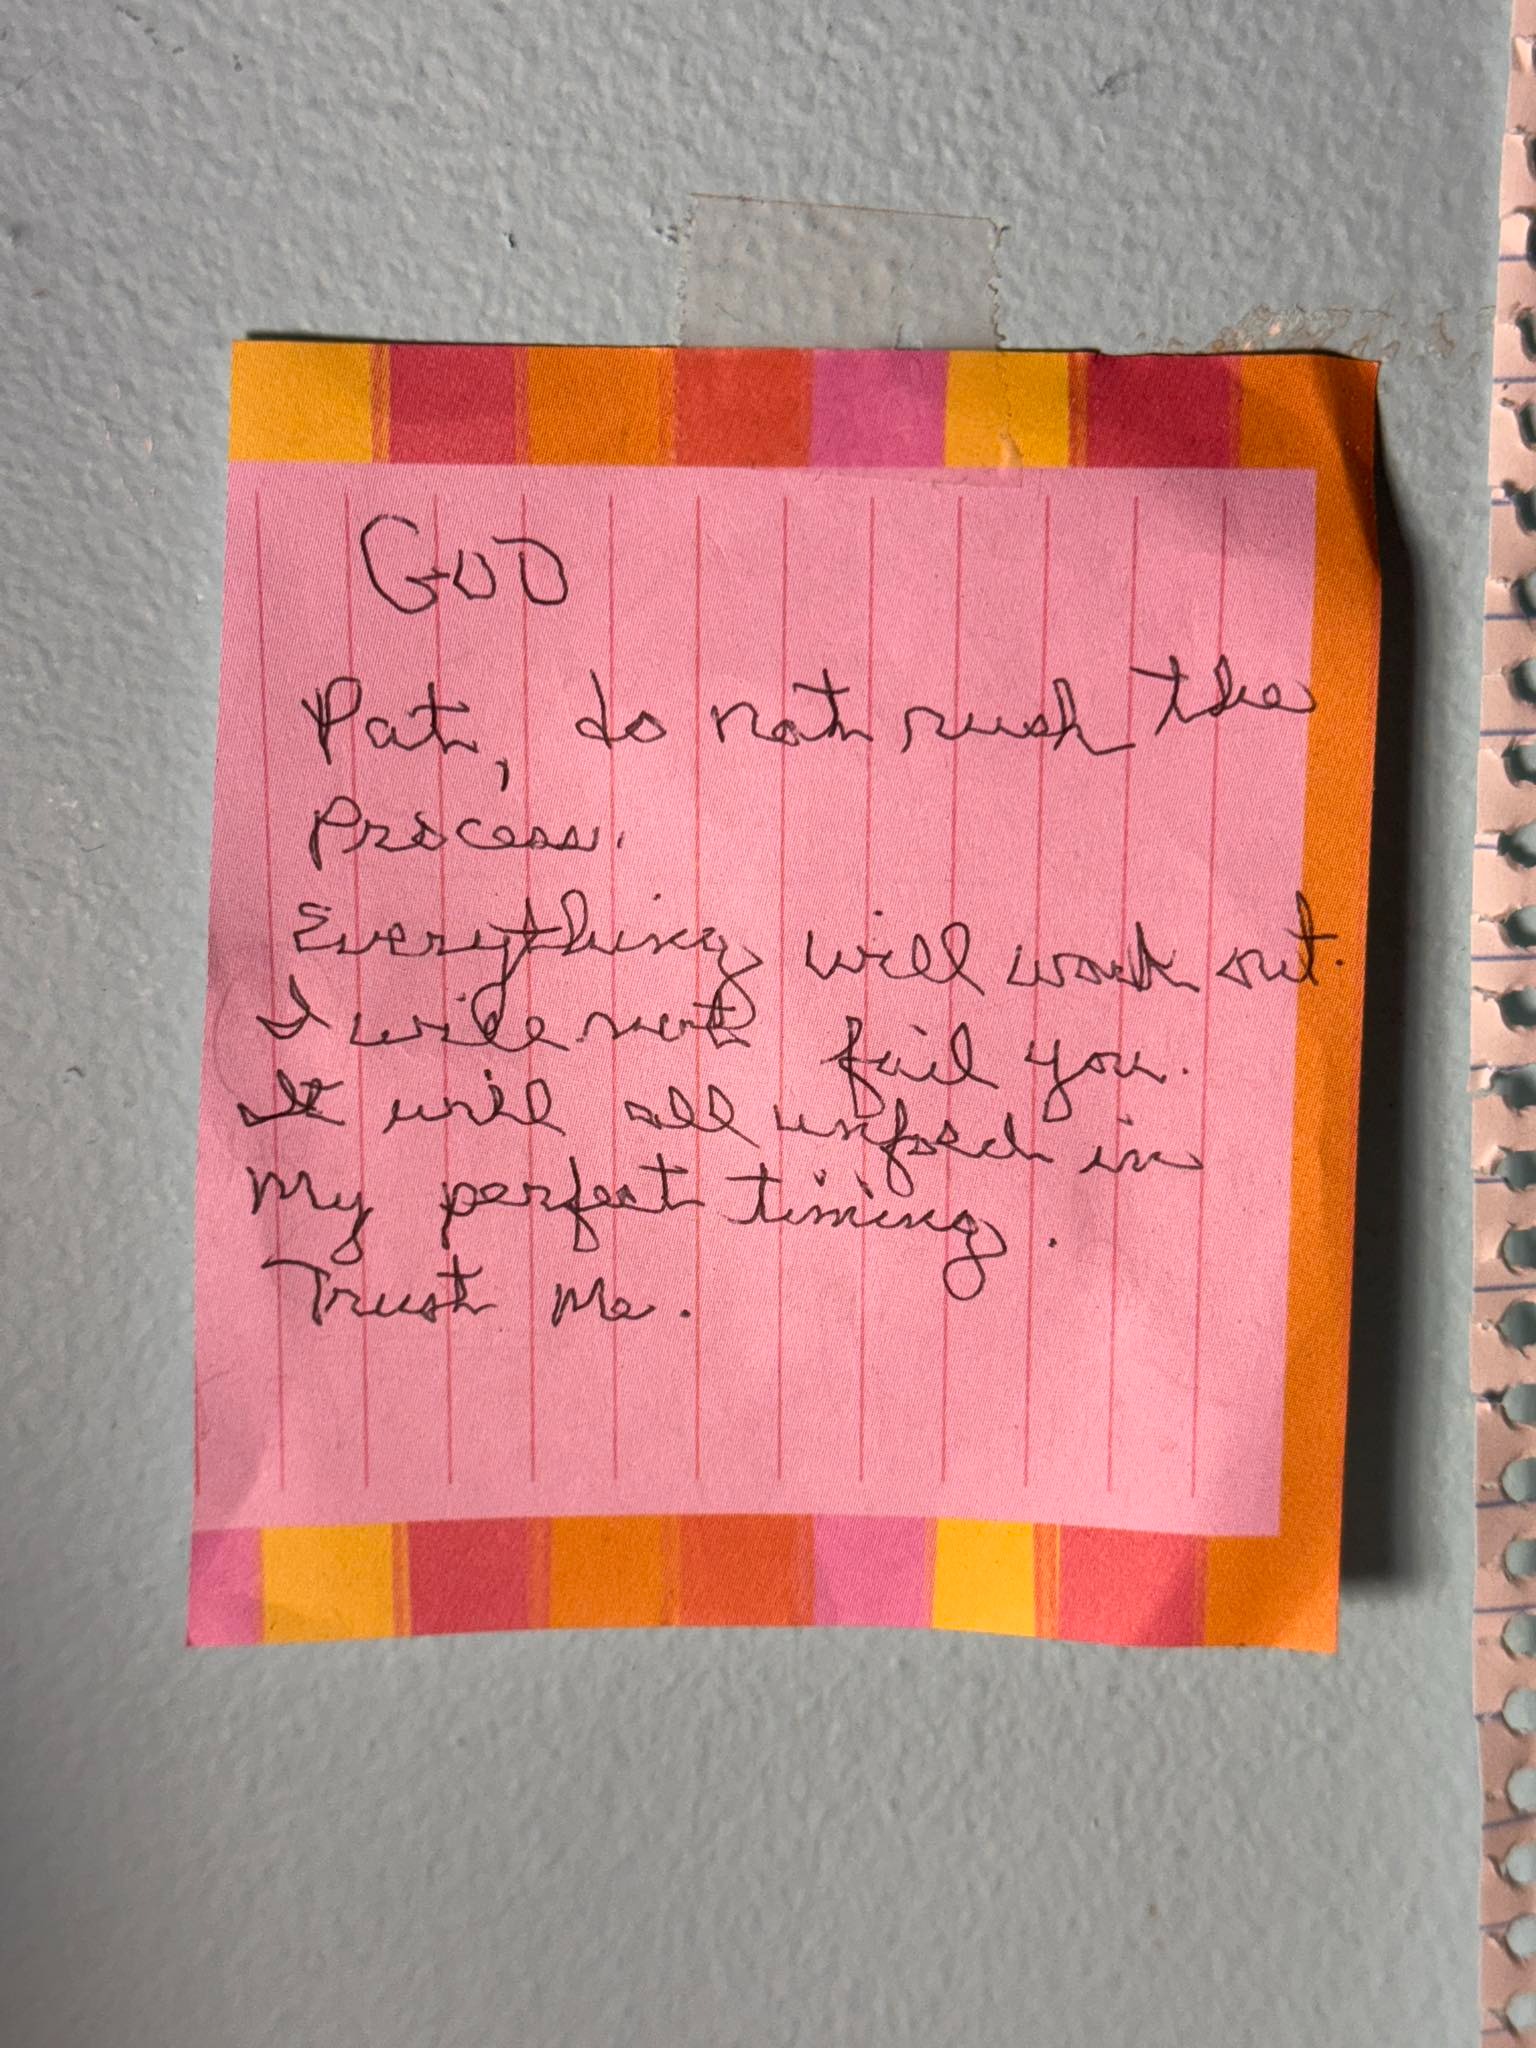 GOD
Pat, do not rush the
Process.
Everything will work out.
I will not fail you.
It will all unfold in
My perfect timing.
Trust Me.